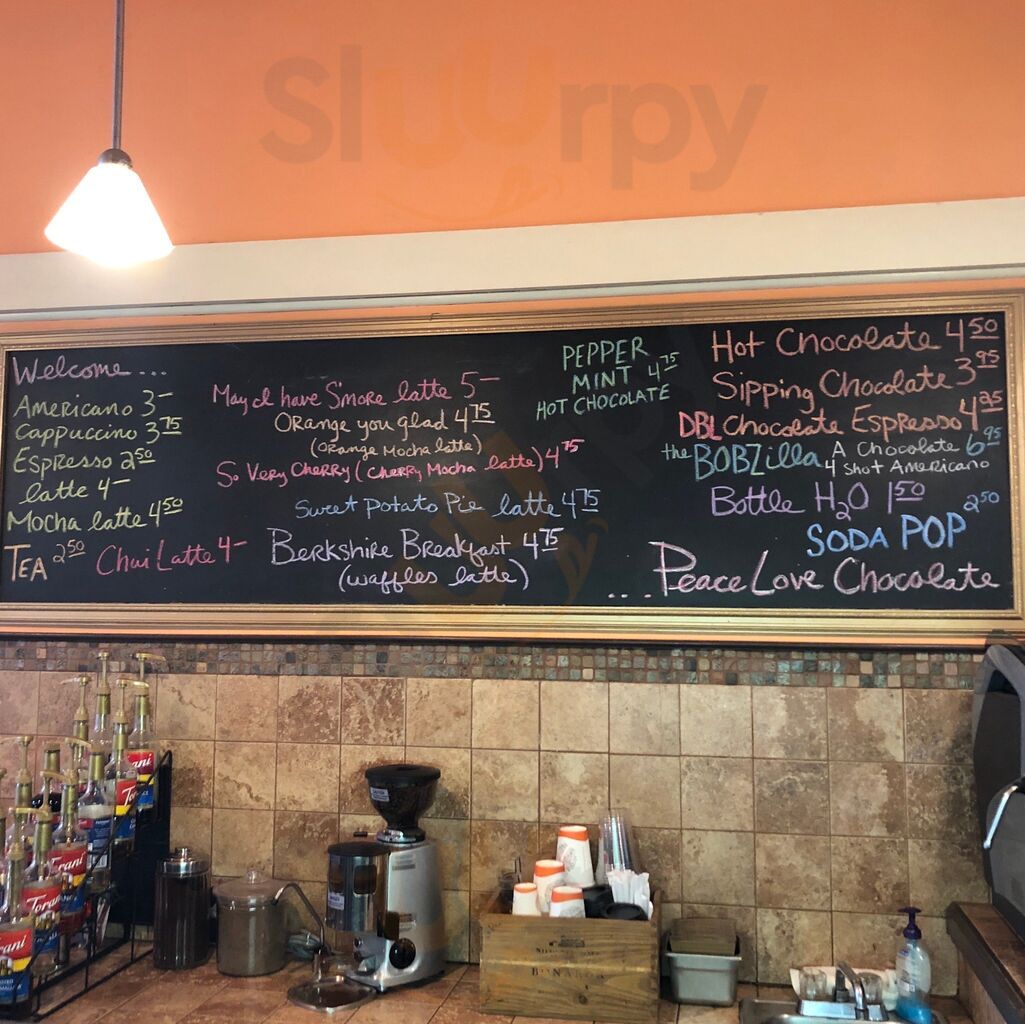 Sluurpy
Welcome ...
Americano 3-
Cappuccino 3.75
Espresso 2.50
latte 4-
Mocha latte 4.50
TEA 2.50
Chai Latte 4-
May I have S'more latte 5-
Orange you glad 4.75
(Orange Mocha latte)
So Very Cherry (Cherry Mocha latte) 4.75
Sweet Potato Pie latte 4.75
Berkshire Breakfast 4.75
(waffles latte)
PEPPER
MINT 4.75
HOT CHOCOLATE
Hot Chocolate 4.50
Sipping Chocolate 3.95
DBL Chocolate Espresso 4.25
the BOBZilla A Chocolate 6.95
4 Shot Americano
Bottle H2O 1.50
SODA POP 2.50
.... Peace Love Chocolate
Torani
Torani
Torani
Torani